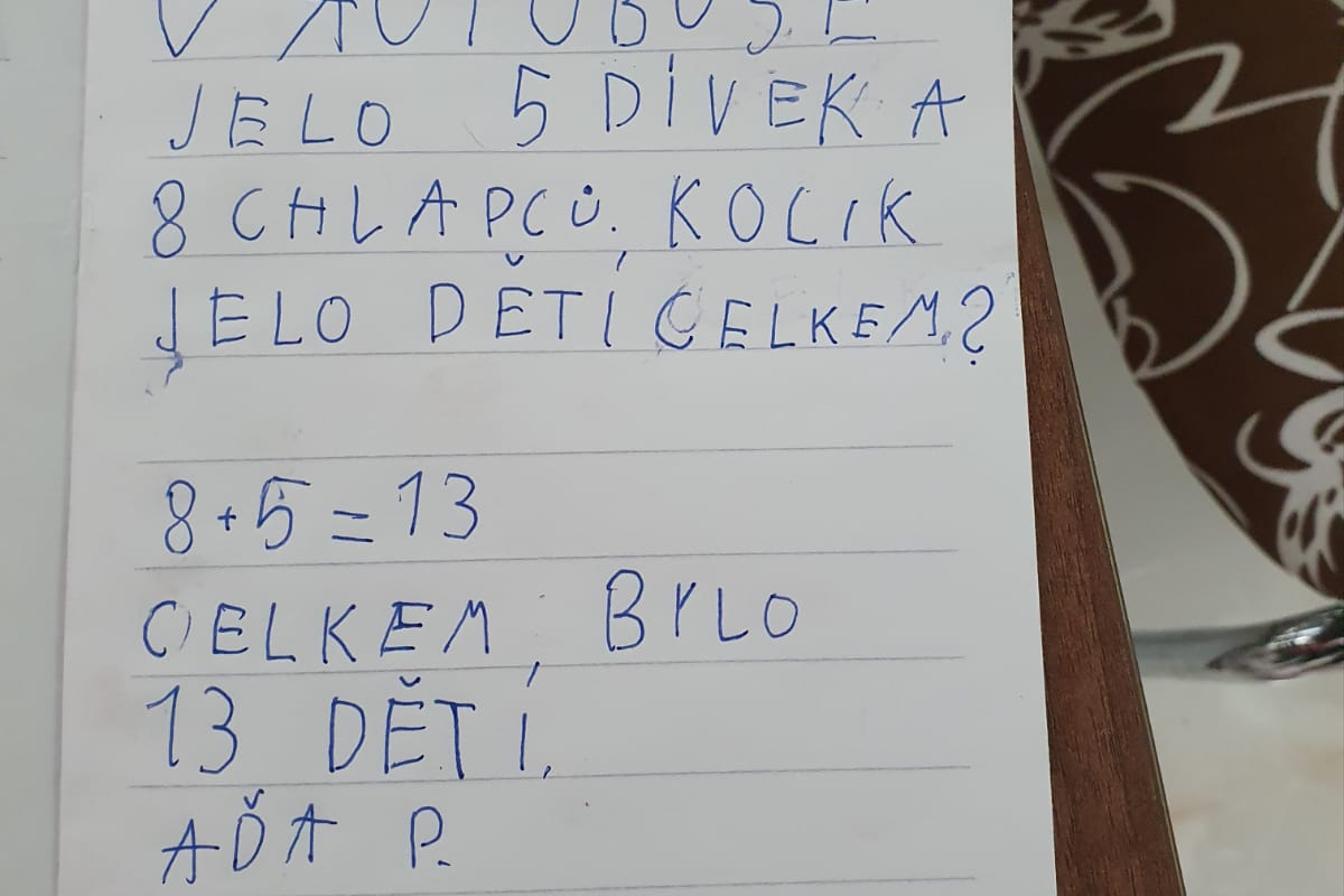 V AUTOBUSE
JELO 5 DÍVEK A
8 CHLAPCŮ. KOLIK
JELO DĚTÍ CELKEM?
8+5=13
CELKEM BYLO
13 DĚTÍ.
AĎA P.